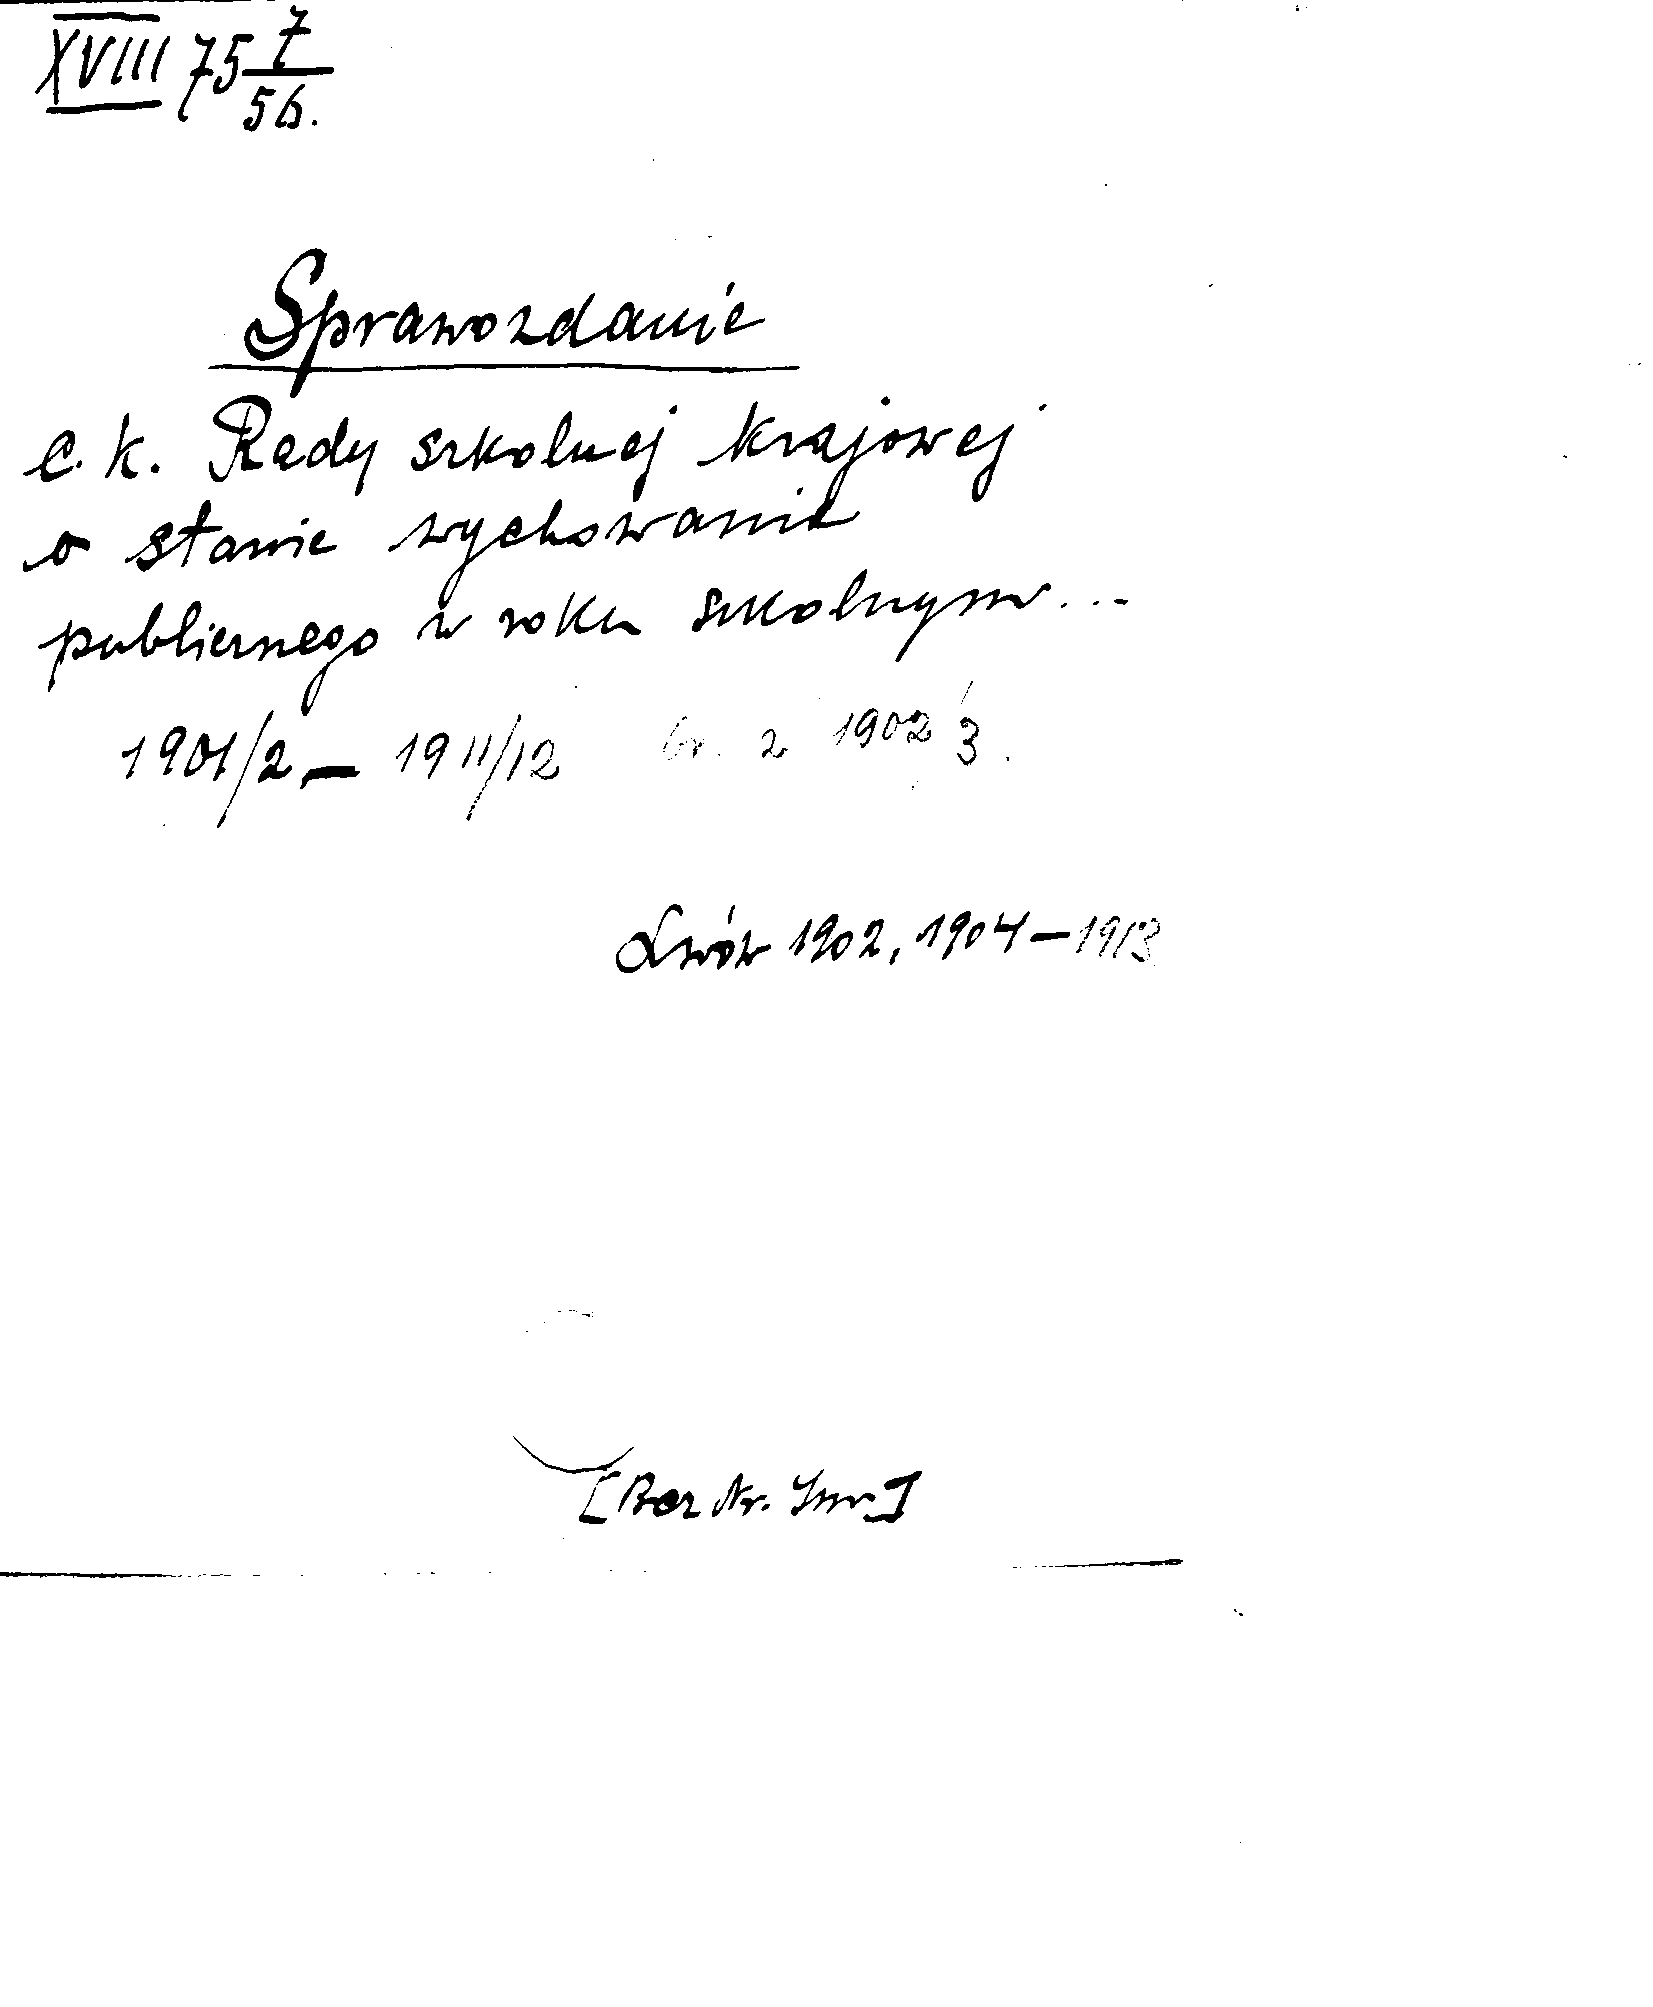 XVIII 75 7/56.
Sprawozdanie
c. k. Rady szkolnej krajowej
o stanie wychowania
publicznego w roku szkolnym...
1901/2 – 1911/12 br. z 1902/3.
Lwów 1902, 1904 – 1913
[Bez Nr. Inw.]